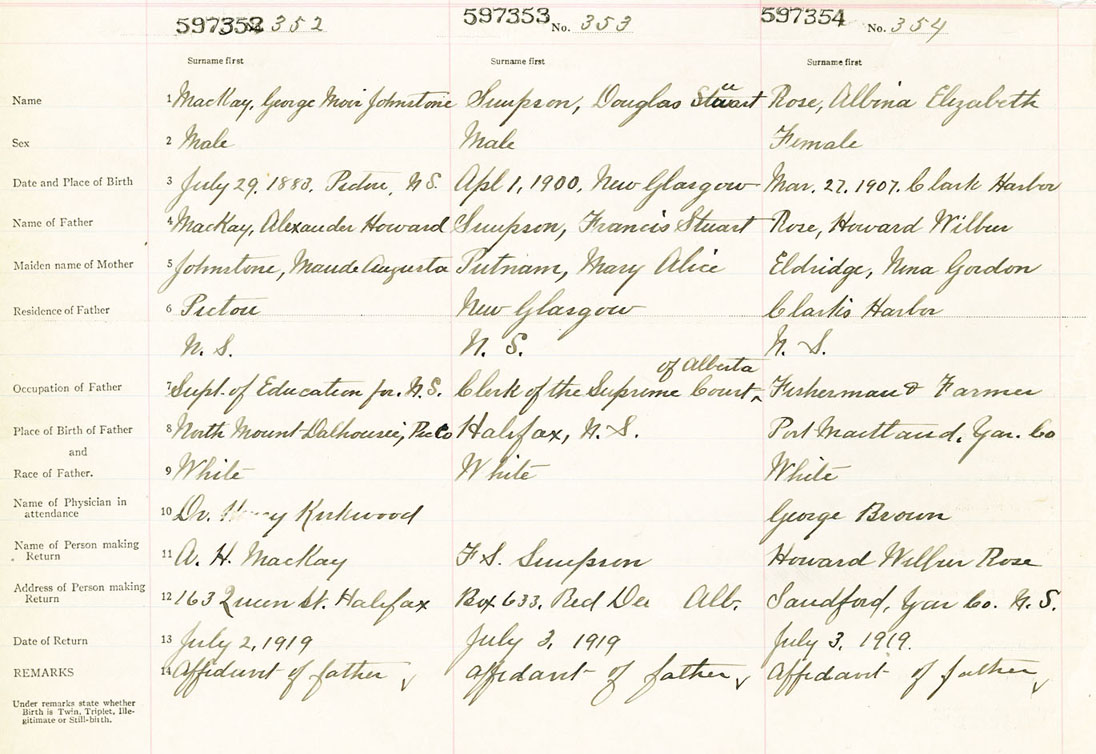 597352 352 597353 No. 353 597354 No. 354
Surname first Surname first Surname first
Name 1 MacKay, George Moir Johnstone Simpson, Douglas Stuart Rose, Albina Elizabeth
Sex 2 Male Male Female
Date and Place of Birth 3 July 29, 1883, Pictou, N.S. Apl 1, 1900, New Glasgow Mar. 27, 1907, Clark Harbor
Name of Father 4 MacKay, Alexander Howard Simpson, Francis Stuart Rose, Howard Wilbur
Maiden name of Mother 5 Johnstone, Maude Augusta Putnam, Mary Alice Eldridge, Nina Gordon
Residence of Father 6 Pictou New Glasgow Clark's Harbor
N. S. N. S. N. S.
of Alberta
Occupation of Father 7 Supt. of Education for N.S. Clerk of the Supreme Court ^ Fisherman & Farmer
Place of Birth of Father 8 North Mount Dalhousie, Pic Co Halifax, N. S. Port Maitland, Yar. Co
and
Race of Father. 9 White White White
Name of Physician in
attendance 10 Dr. Kirkwood George Brown
Name of Person making
Return 11 A. H. MacKay F. S. Simpson Howard Wilbur Rose
Address of Person making
Return 12 163 Queen St. Halifax Box 633, Red Dee Alb. Sandford, Yar Co. N. S.
Date of Return 13 July 2, 1919 July 3, 1919 July 3, 1919.
REMARKS 14 Affidavit of father √ affidavit of father √ Affidavit of father √
Under remarks state whether
Birth is Twin, Triplet, Ille-
gitimate or Still-birth.